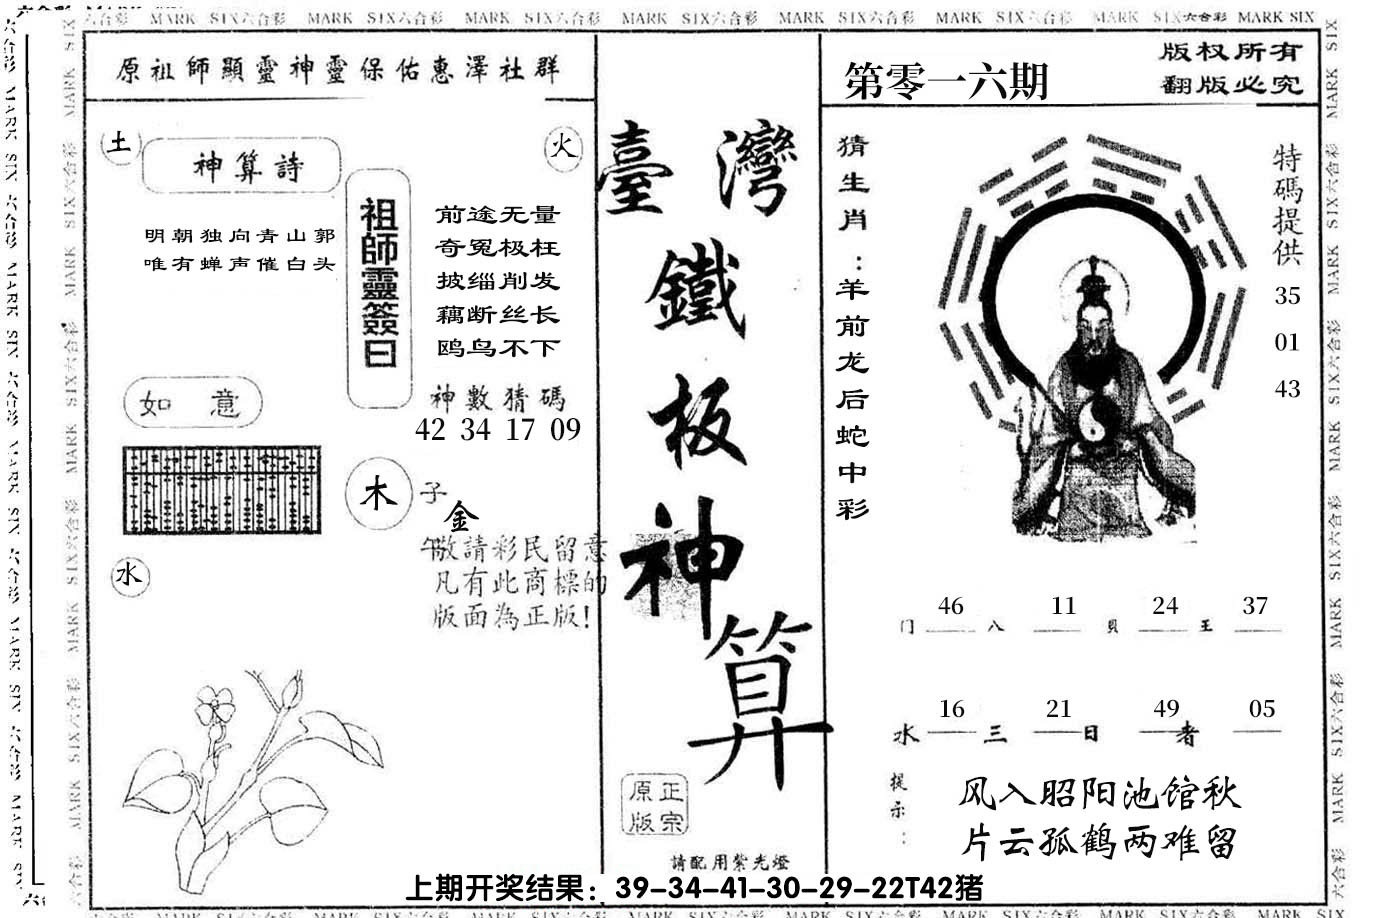 MARK SIX六合彩 MARK SIX六合彩 MARK SIX六合彩 MARK SIX六合彩 MARK SIX六合彩 MARK SIX六合彩 MARK SIX六合彩 MARK SIX
原祖師顯靈神靈保佑惠澤社群
土
神算詩
火
明朝独向青山郭
唯有蝉声催白头
祖師靈簽曰
前途无量
奇冤极枉
披缁削发
藕断丝长
鸥鸟不下
如意
神數猜碼
42 34 17 09
木
子
金
午
水
敬請彩民留意
凡有此商標的
版面為正版!
臺灣
鐵
板
神
算
正宗
原版
請配用紫光燈
第零一六期
版权所有
翻版必究
猜生肖:羊前龙后蛇中彩
特碼提供
35
01
43
46 11 24 37
门 八 貝 王
16 21 49 05
水 三 日 者
提示:
风入昭阳池馆秋
片云孤鹤两难留
上期开奖结果：39-34-41-30-29-22T42猪